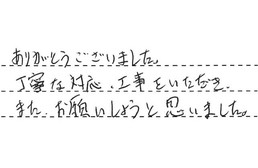 ありがとうございました。
丁寧な対応、工事をいただき、
また、お願いしようと思いました。